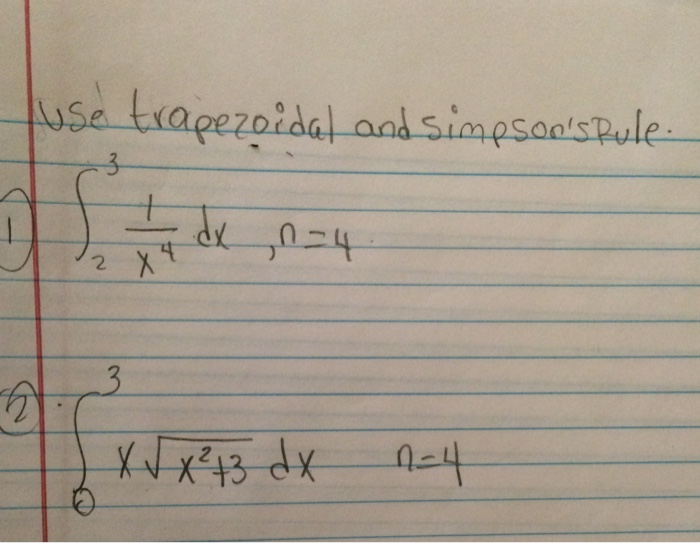 Use trapezoidal and Simpson's Rule.
① ∫₂³ 1/x⁴ dx , n=4
② ∫₀³ x√(x²+3) dx n=4